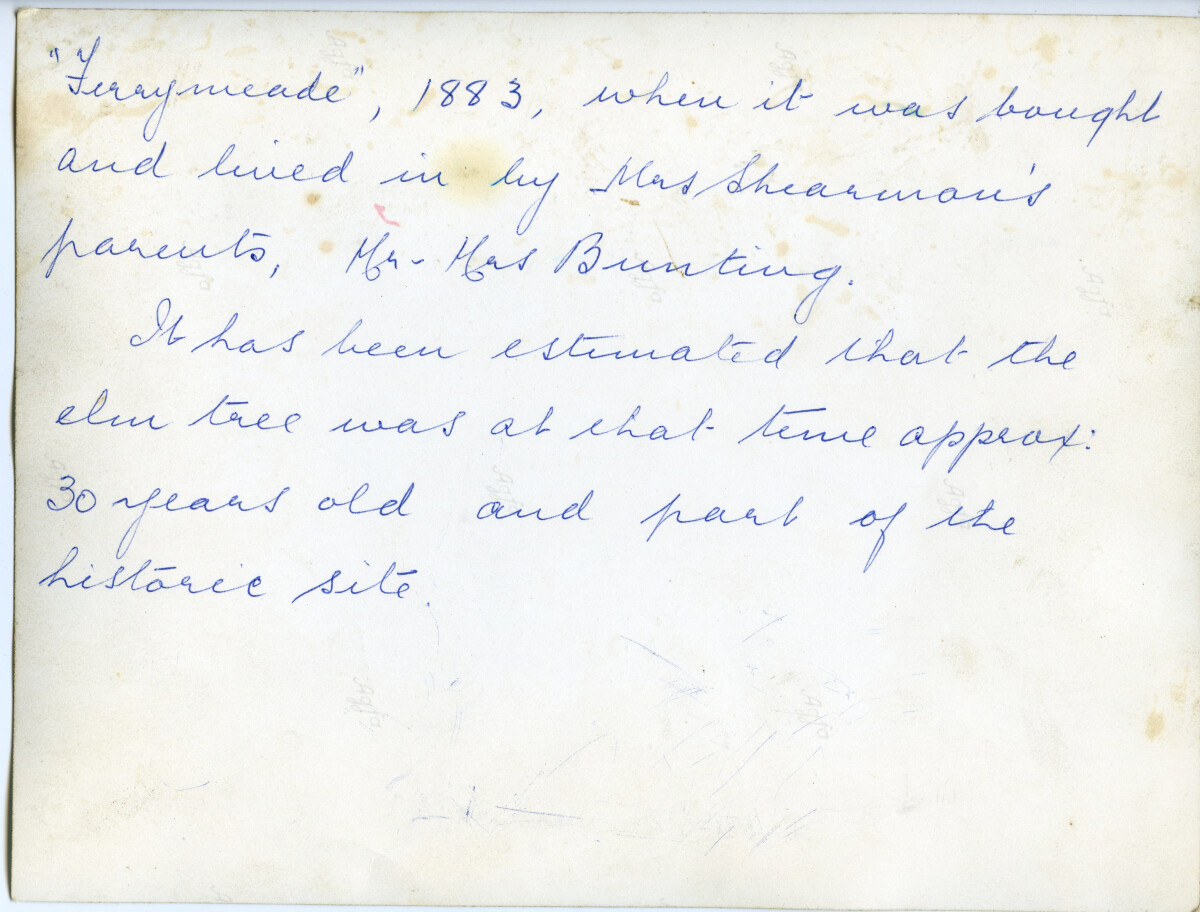 "Ferrymeade", 1883, when it was bought
and lived in by Mrs Shearman's
parents, Mr - Mrs Bunting.
It has been estimated that the
elm tree was at that time approx:
30 years old and part of the
historic site.